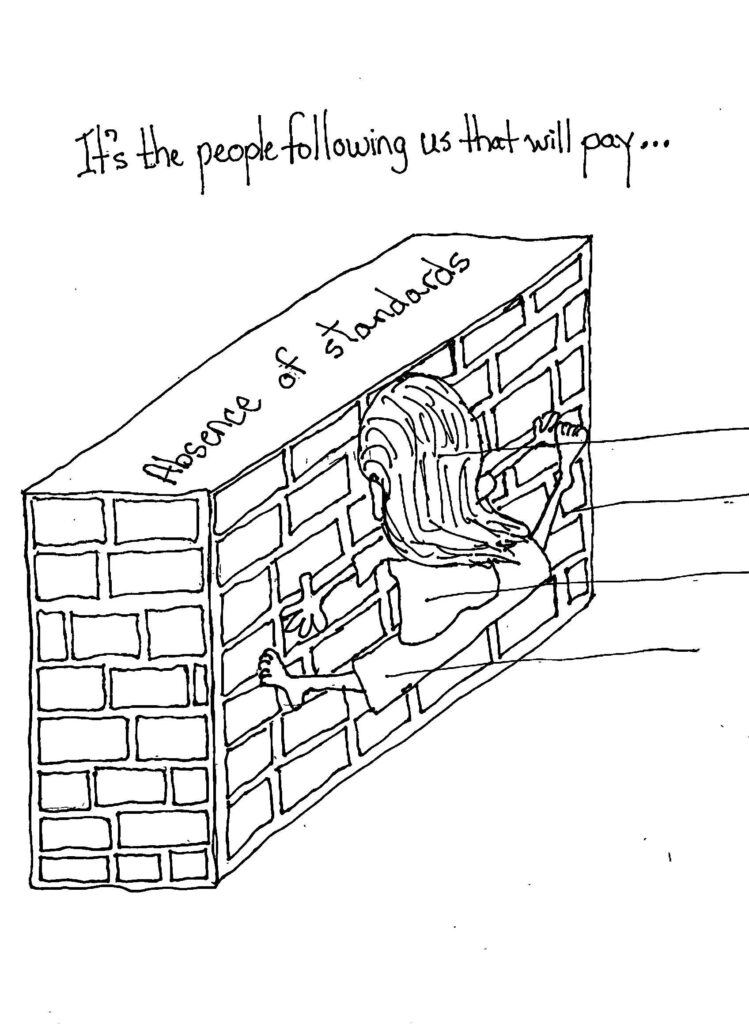 It's the people following us that will pay...
Absence of standards